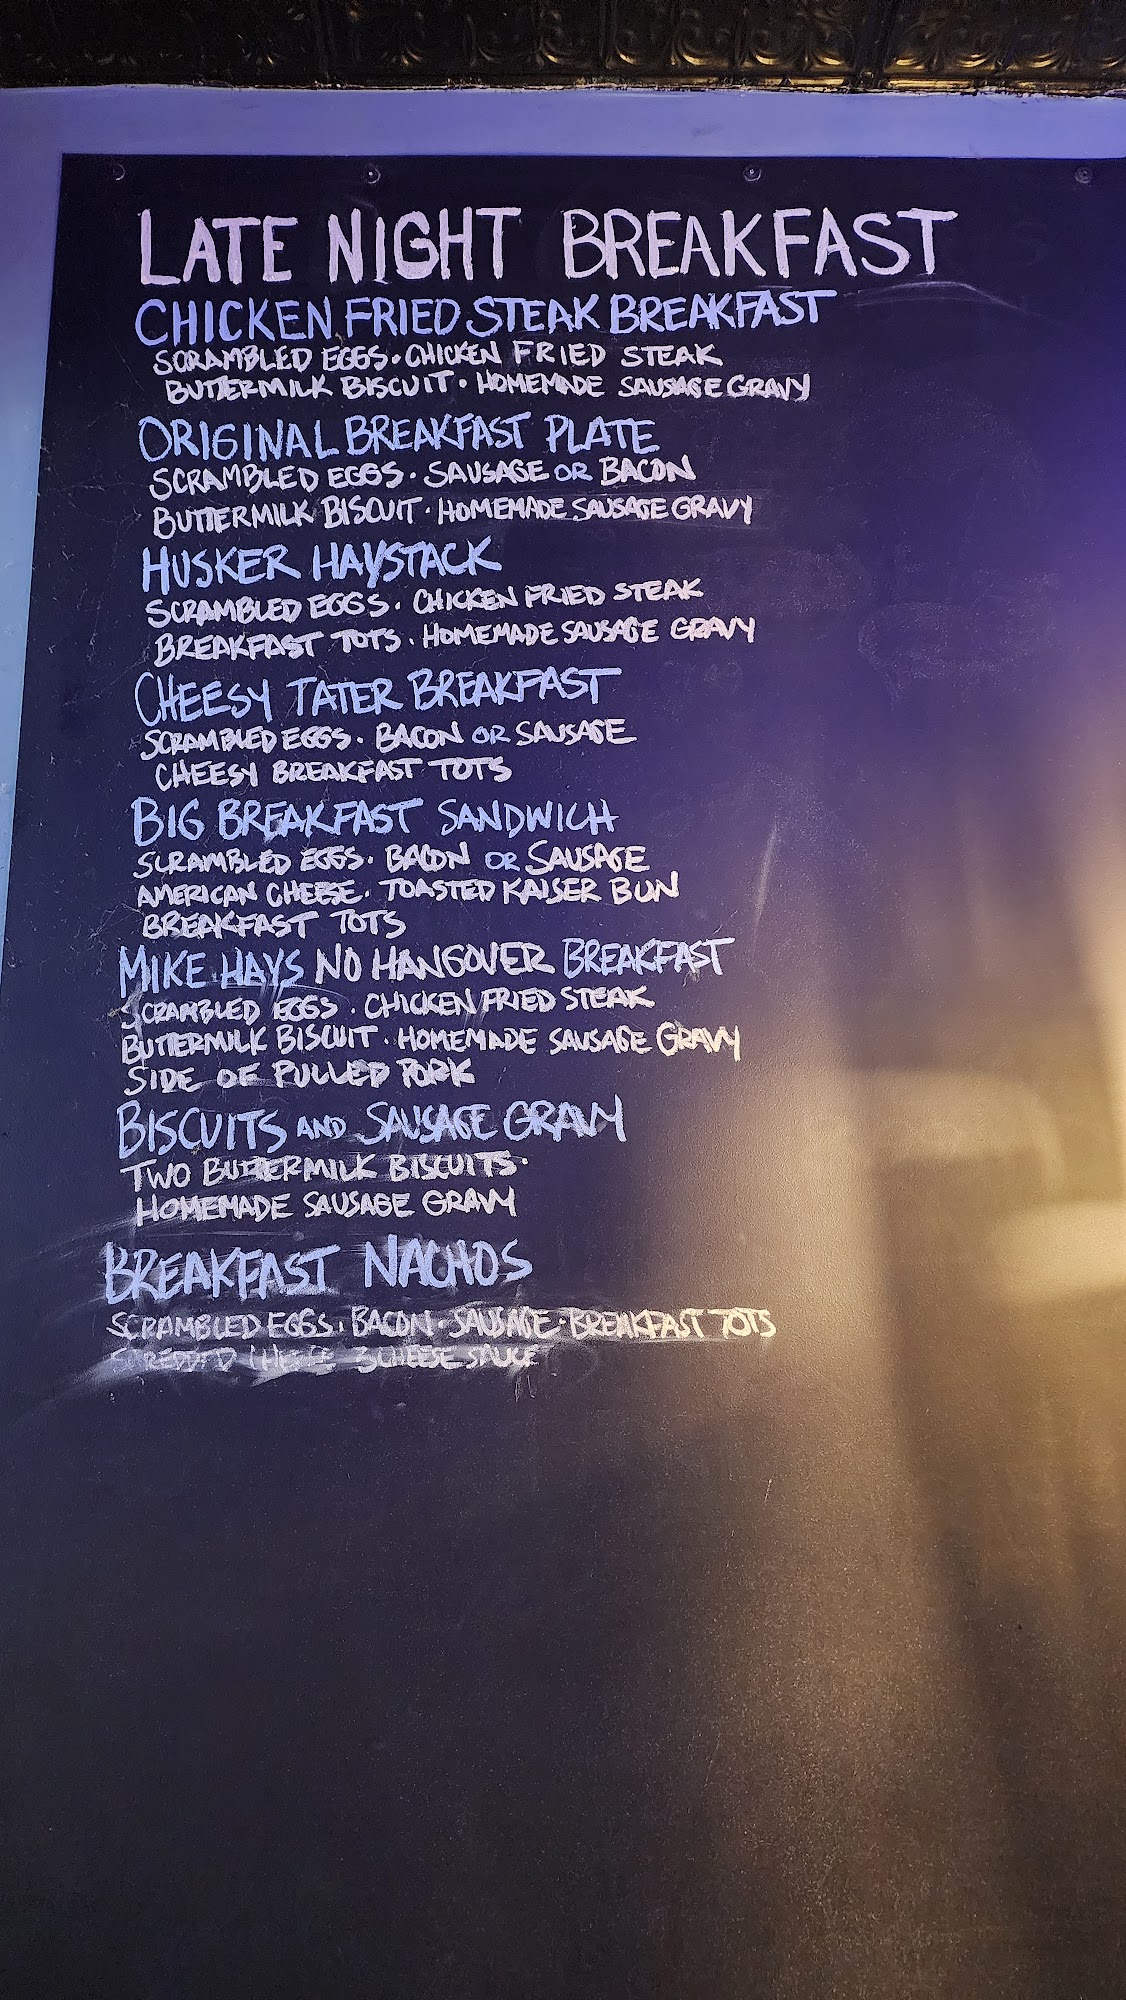 LATE NIGHT BREAKFAST
CHICKEN FRIED STEAK BREAKFAST
SCRAMBLED EGGS · CHICKEN FRIED STEAK
BUTTERMILK BISCUIT · HOMEMADE SAUSAGE GRAVY
ORIGINAL BREAKFAST PLATE
SCRAMBLED EGGS · SAUSAGE OR BACON
BUTTERMILK BISCUIT · HOMEMADE SAUSAGE GRAVY
HUSKER HAYSTACK
SCRAMBLED EGGS · CHICKEN FRIED STEAK
BREAKFAST TOTS · HOMEMADE SAUSAGE GRAVY
CHEESY TATER BREAKFAST
SCRAMBLED EGGS · BACON OR SAUSAGE
CHEESY BREAKFAST TOTS
BIG BREAKFAST SANDWICH
SCRAMBLED EGGS · BACON OR SAUSAGE
AMERICAN CHEESE · TOASTED KAISER BUN
BREAKFAST TOTS
MIKE HAYS NO HANGOVER BREAKFAST
SCRAMBLED EGGS · CHICKEN FRIED STEAK
BUTTERMILK BISCUIT · HOMEMADE SAUSAGE GRAVY
SIDE OF PULLED PORK
BISCUITS AND SAUSAGE GRAVY
TWO BUTTERMILK BISCUITS ·
HOMEMADE SAUSAGE GRAVY
BREAKFAST NACHOS
SCRAMBLED EGGS · BACON · SAUSAGE · BREAKFAST TOTS
SHREDDED CHEESE 3 CHEESE SAUCE